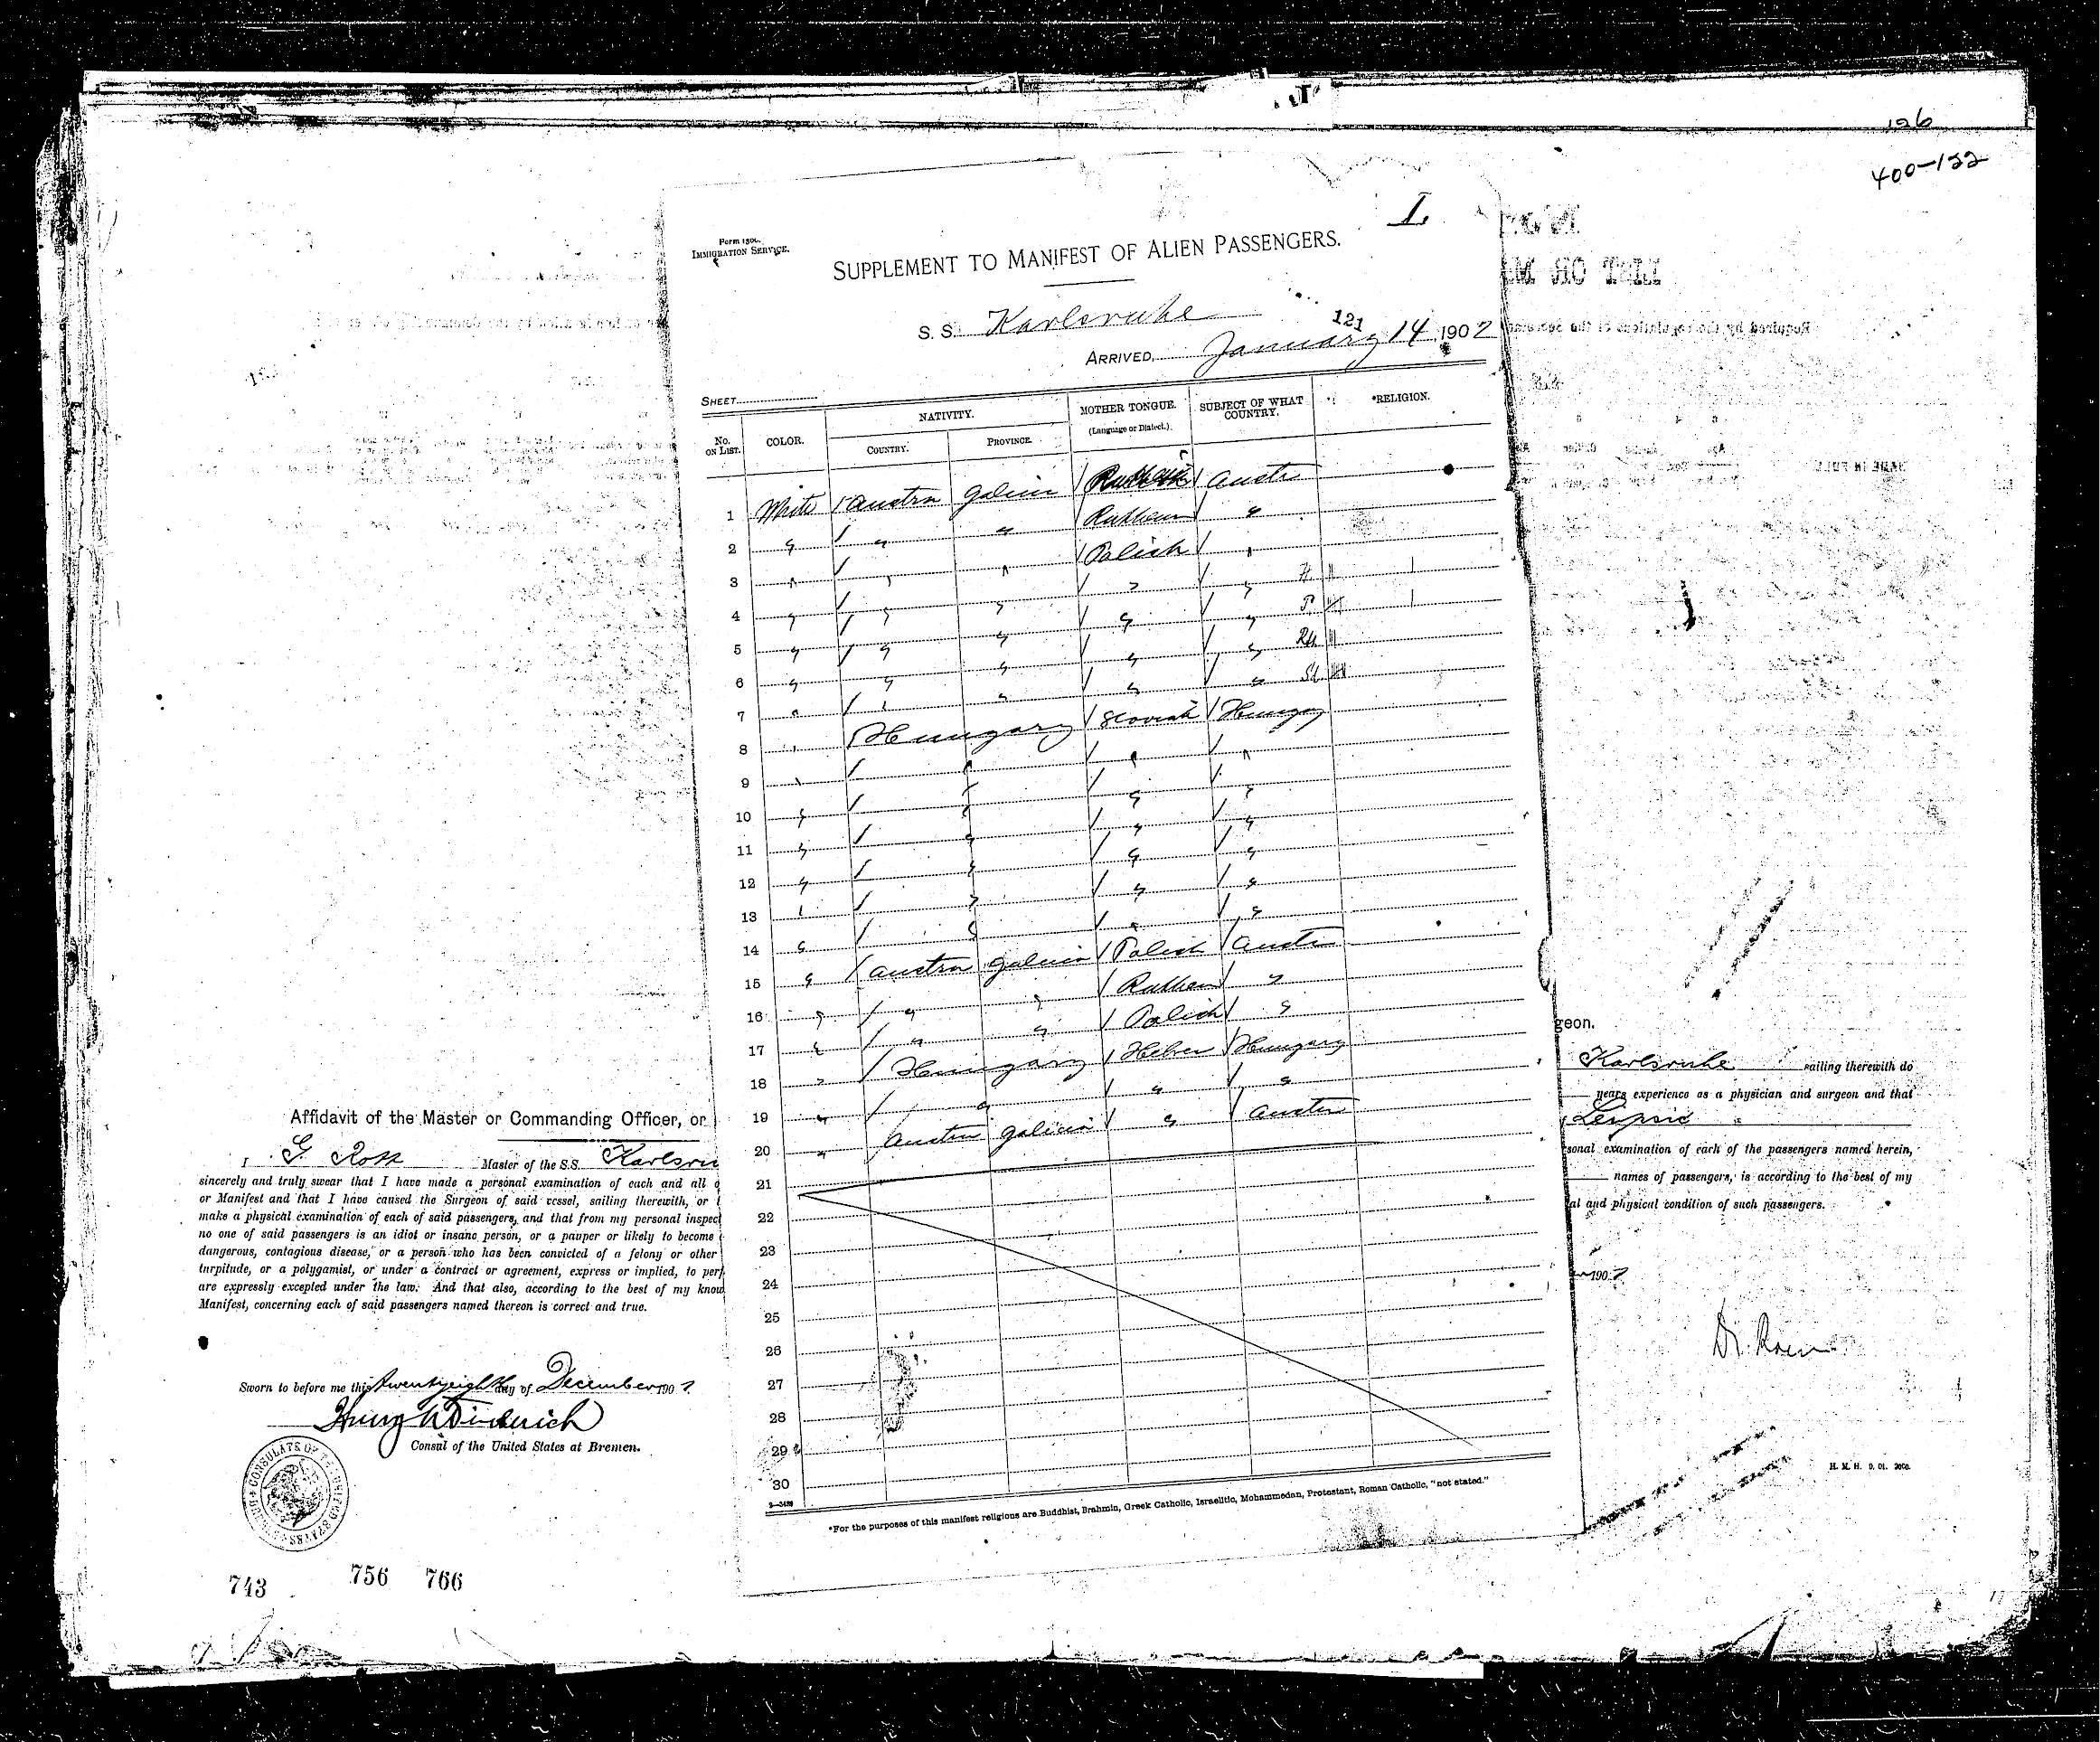 126
400-122
Form 1500.
IMMIGRATION SERVICE.
I
SUPPLEMENT TO MANIFEST OF ALIEN PASSENGERS.
S. S. Karlsruhe
121
ARRIVED, January 14, 1902
SHEET
No. ON LIST. COLOR. NATIVITY. COUNTRY. PROVINCE. MOTHER TONGUE. (Language or Dialect.) SUBJECT OF WHAT COUNTRY. *RELIGION.
1 White Austria Galicia Austri
2 " " " Ruthen "
3 " " " Polish "
4 " " " " " H III I
5 " " " " " P I
6 " " " " " Ru III
7 " " " " " Sl
8 " Hungary Slovak Hungary
9 " " " "
10 " " " "
11 " " " "
12 " " " "
13 " " " "
14 " " " "
15 " Austria Galicia Polish Austri
16 " " " Ruthen "
17 " " " Polish "
18 " Hungary Hebrew Hungary
19 " " " "
20 " Austria Galicia " Austria
21
22
23
24
25
26
27
28
29
30
2—3428
*For the purposes of this manifest religions are Buddhist, Brahmin, Greek Catholic, Israelitic, Mohammedan, Protestant, Roman Catholic, "not stated."
Affidavit of the Master or Commanding Officer, or
I, G Rott Master of the S.S. Karlsru
sincerely and truly swear that I have made a personal examination of each and all o
or Manifest and that I have caused the Surgeon of said vessel, sailing therewith, or t
make a physical examination of each of said passengers, and that from my personal inspec
no one of said passengers is an idiot or insane person, or a pauper or likely to become
dangerous, contagious disease, or a person who has been convicted of a felony or other
turpitude, or a polygamist, or under a contract or agreement, express or implied, to perf
are expressly excepted under the law. And that also, according to the best of my know
Manifest, concerning each of said passengers named thereon is correct and true.
Sworn to before me this twentyeighth day of December 190
Consul of the United States at Bremen.
CONSULATE OF THE UNITED STATES
743 756 766
geon.
Karlsruhe sailing therewith do
years experience as a physician and surgeon and that
Leipsic
sonal examination of each of the passengers named herein,
names of passengers, is according to the best of my
al and physical condition of such passengers.
190
Dr.
H. M. H. 9. 01.